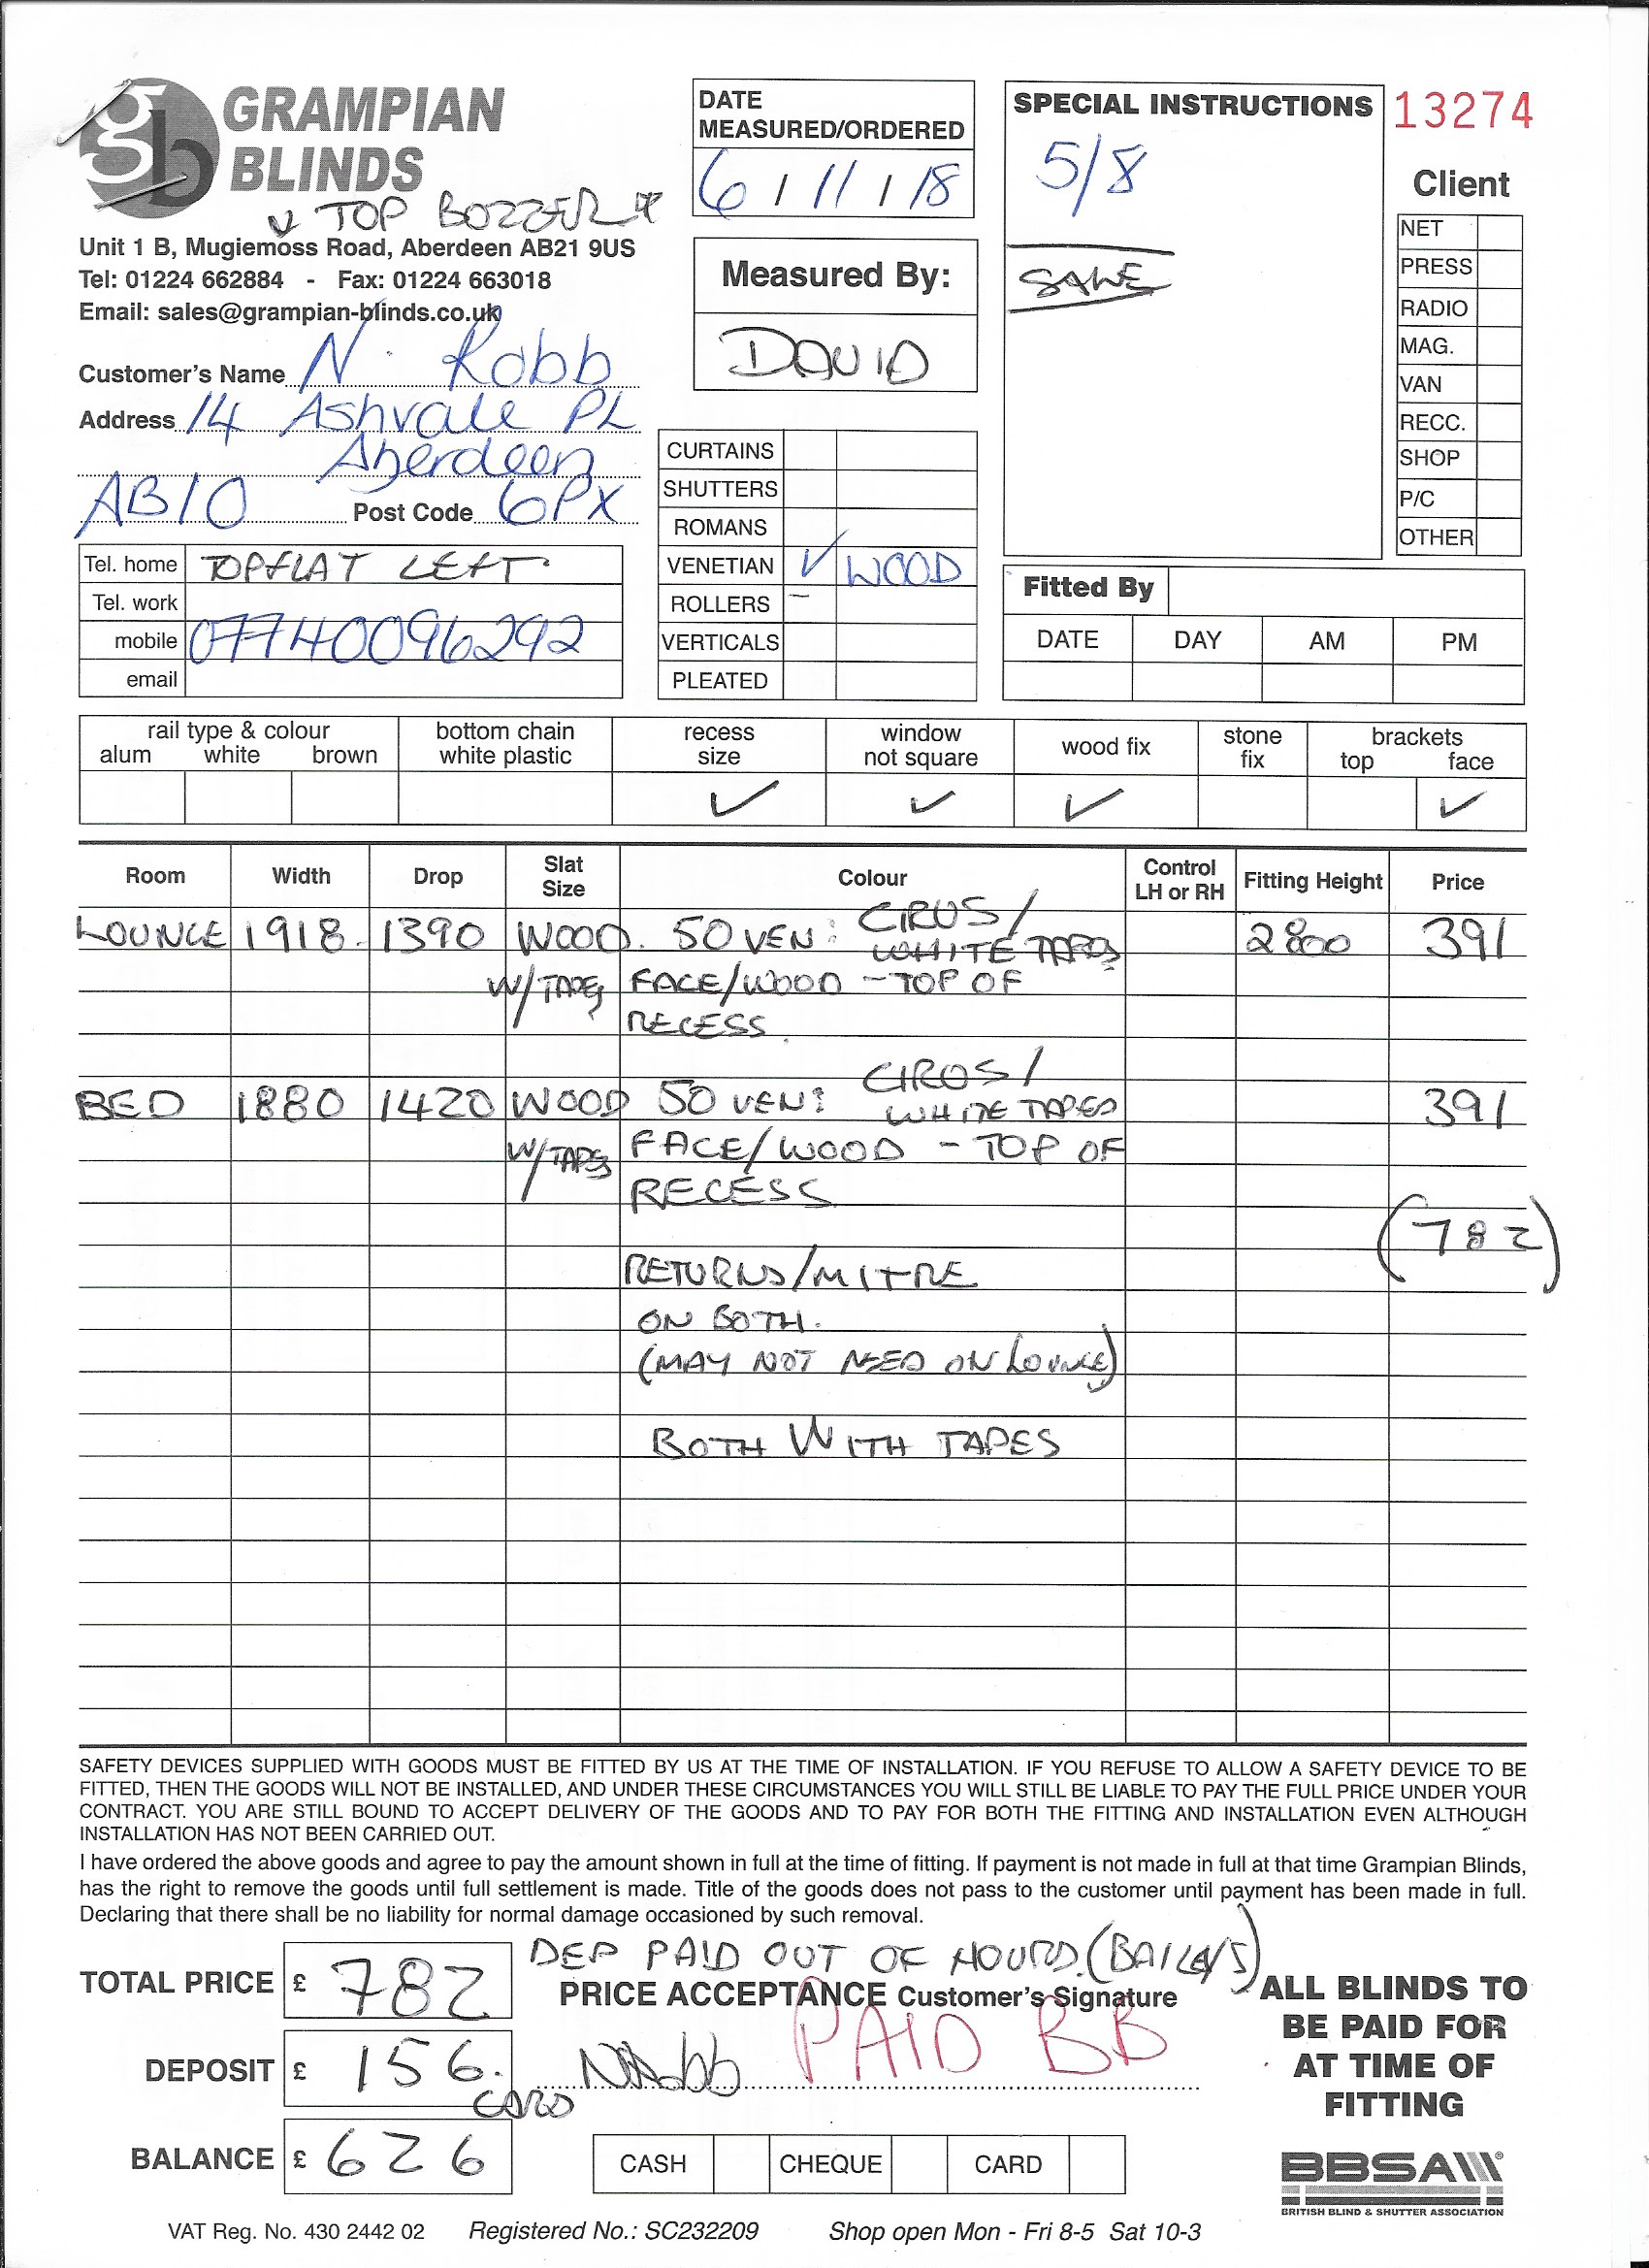 GRAMPIAN
BLINDS
TOP BOZZER
Unit 1 B, Mugiemoss Road, Aberdeen AB21 9US
Tel: 01224 662884 - Fax: 01224 663018
Email: sales@grampian-blinds.co.uk
Customer's Name N. Robb
Address 14 Ashvale PL
Aberdeen
AB10 Post Code 6PX
Tel. home TOPFLAT LEFT.
Tel. work
mobile 07740096292
email
DATE
MEASURED/ORDERED
6/11/18
Measured By:
DAVID
CURTAINS
SHUTTERS
ROMANS
VENETIAN ✓ WOOD
ROLLERS –
VERTICALS
PLEATED
SPECIAL INSTRUCTIONS
5/8
13274
Client
NET
PRESS
RADIO
MAG.
VAN
RECC.
SHOP
P/C
OTHER
Fitted By
DATE DAY AM PM
rail type & colour
alum white brown
bottom chain
white plastic
recess
size
✓
window
not square
✓
wood fix
✓
stone
fix
brackets
top face
✓
Room Width Drop Slat Size Colour Control LH or RH Fitting Height Price
LOUNGE 1918. 1390 WOOD. 50 VEN: CIRUS/ 2800 391
WHITE TAPES
W/TAPES FACE/WOOD - TOP OF
RECESS
BED 1880 1420 WOOD 50 VEN: CIROS/ 391
WHITE TAPES
W/TAPES FACE/WOOD - TOP OF
RECESS
(782)
RETURNS/MITRE
ON BOTH.
(MAY NOT NEED ON LOUNGE)
BOTH WITH TAPES
SAFETY DEVICES SUPPLIED WITH GOODS MUST BE FITTED BY US AT THE TIME OF INSTALLATION. IF YOU REFUSE TO ALLOW A SAFETY DEVICE TO BE
FITTED, THEN THE GOODS WILL NOT BE INSTALLED, AND UNDER THESE CIRCUMSTANCES YOU WILL STILL BE LIABLE TO PAY THE FULL PRICE UNDER YOUR
CONTRACT. YOU ARE STILL BOUND TO ACCEPT DELIVERY OF THE GOODS AND TO PAY FOR BOTH THE FITTING AND INSTALLATION EVEN ALTHOUGH
INSTALLATION HAS NOT BEEN CARRIED OUT.
I have ordered the above goods and agree to pay the amount shown in full at the time of fitting. If payment is not made in full at that time Grampian Blinds,
has the right to remove the goods until full settlement is made. Title of the goods does not pass to the customer until payment has been made in full.
Declaring that there shall be no liability for normal damage occasioned by such removal.
DEP PAID OUT OF HOURS. (BAILEYS)
TOTAL PRICE £ 782
PRICE ACCEPTANCE Customer's Signature
PAID BB
DEPOSIT £ 156.
CARD
NRobb
BALANCE £ 626
CASH CHEQUE CARD
ALL BLINDS TO
BE PAID FOR
AT TIME OF
FITTING
BBSA
BRITISH BLIND & SHUTTER ASSOCIATION
VAT Reg. No. 430 2442 02 Registered No.: SC232209 Shop open Mon - Fri 8-5 Sat 10-3